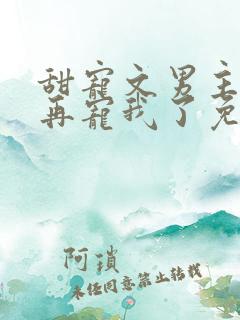 甜宠文男主
再宠我了免
阿琐
未经同意禁止转载